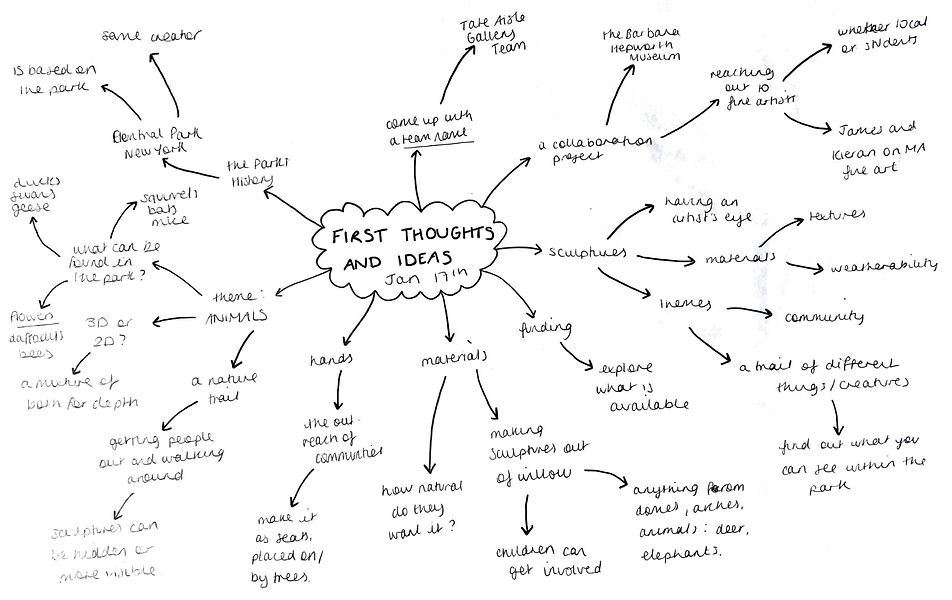 same creator
is based on
the park
Park
New York
the Parks
History
Tate Aisle
Gallery
Team
come up with
a team name
the Barbara
Hepworth
Museum
a collaboration
project
reaching
out to
fine artists
whether local
or students
James and
Kieran on MA
fine art
FIRST THOUGHTS
AND IDEAS
Jan 17th
ducks
swans
geese
squirrels
bats
mice
what can be
found in
the park?
flowers
daffodils
bees
theme:
ANIMALS
3D or
2D?
a mixture of
both for depth
a nature
trail
getting people
out and walking
around
sculptures can
be hidden or
more invisible.
hands
the out-
reach of
communities
make it
as seats,
placed on/
by trees.
materials
how natural
do they
want it?
making
sculptures out
of willow
children can
get involved
anything from
domes, arches,
animals: deer,
elephants.
funding
explore
what is
available
sculptures
having an
artist's eye
materials
textures
weatherability
themes
community
a trail of different
things/creatures
find out what you
can see within the
park